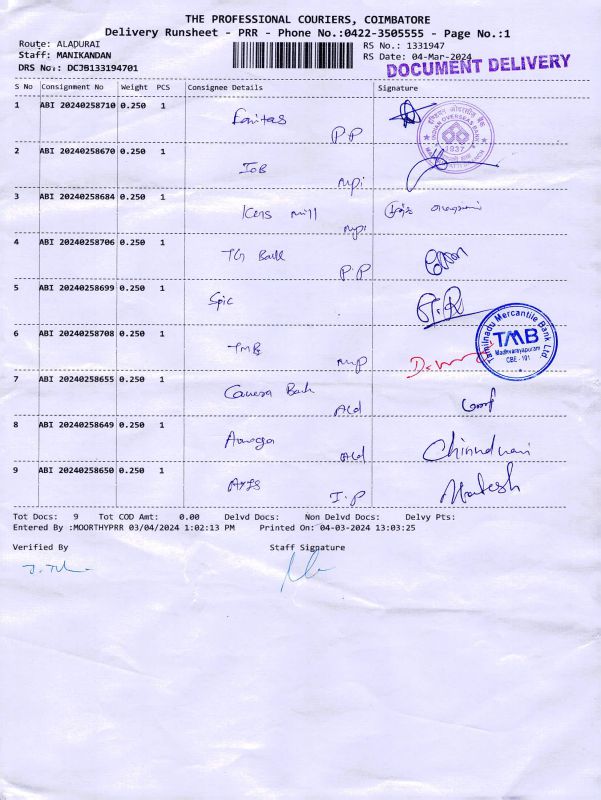 THE PROFESSIONAL COURIERS, COIMBATORE
Delivery Runsheet - PRR - Phone No.:0422-3505555 - Page No.:1
Route: ALAPURAI
RS No.: 1331947
Staff: MANIKANDAN
RS Date: 04-Mar-2024
DRS No.: DCJB133194701
DOCUMENT DELIVERY
S No Consignment No Weight PCS Consignee Details Signature
1 ABI 20240258710 0.250 1 PP
INDIAN OVERSEAS BANK
1937
2 ABI 20240258670 0.250 1 IOB
3 ABI 20240258684 0.250 1 Kens mill
4 ABI 20240258706 0.250 1 P.P
5 ABI 20240258699 0.250 1 Spic
6 ABI 20240258708 0.250 1 TMB
Tamilnadu Mercantile Bank Ltd
TMB
Madhvarayapuram
CBE - 101
7 ABI 20240258655 0.250 1 Canera Bank Ald
8 ABI 20240258649 0.250 1 Ald
9 ABI 20240258650 0.250 1 Axis I.P
Tot Docs: 9 Tot COD Amt: 0.00 Delvd Docs: Non Delvd Docs: Delvy Pts:
Entered By :MOORTHYPRR 03/04/2024 1:02:13 PM Printed On: 04-03-2024 13:03:25
Verified By Staff Signature